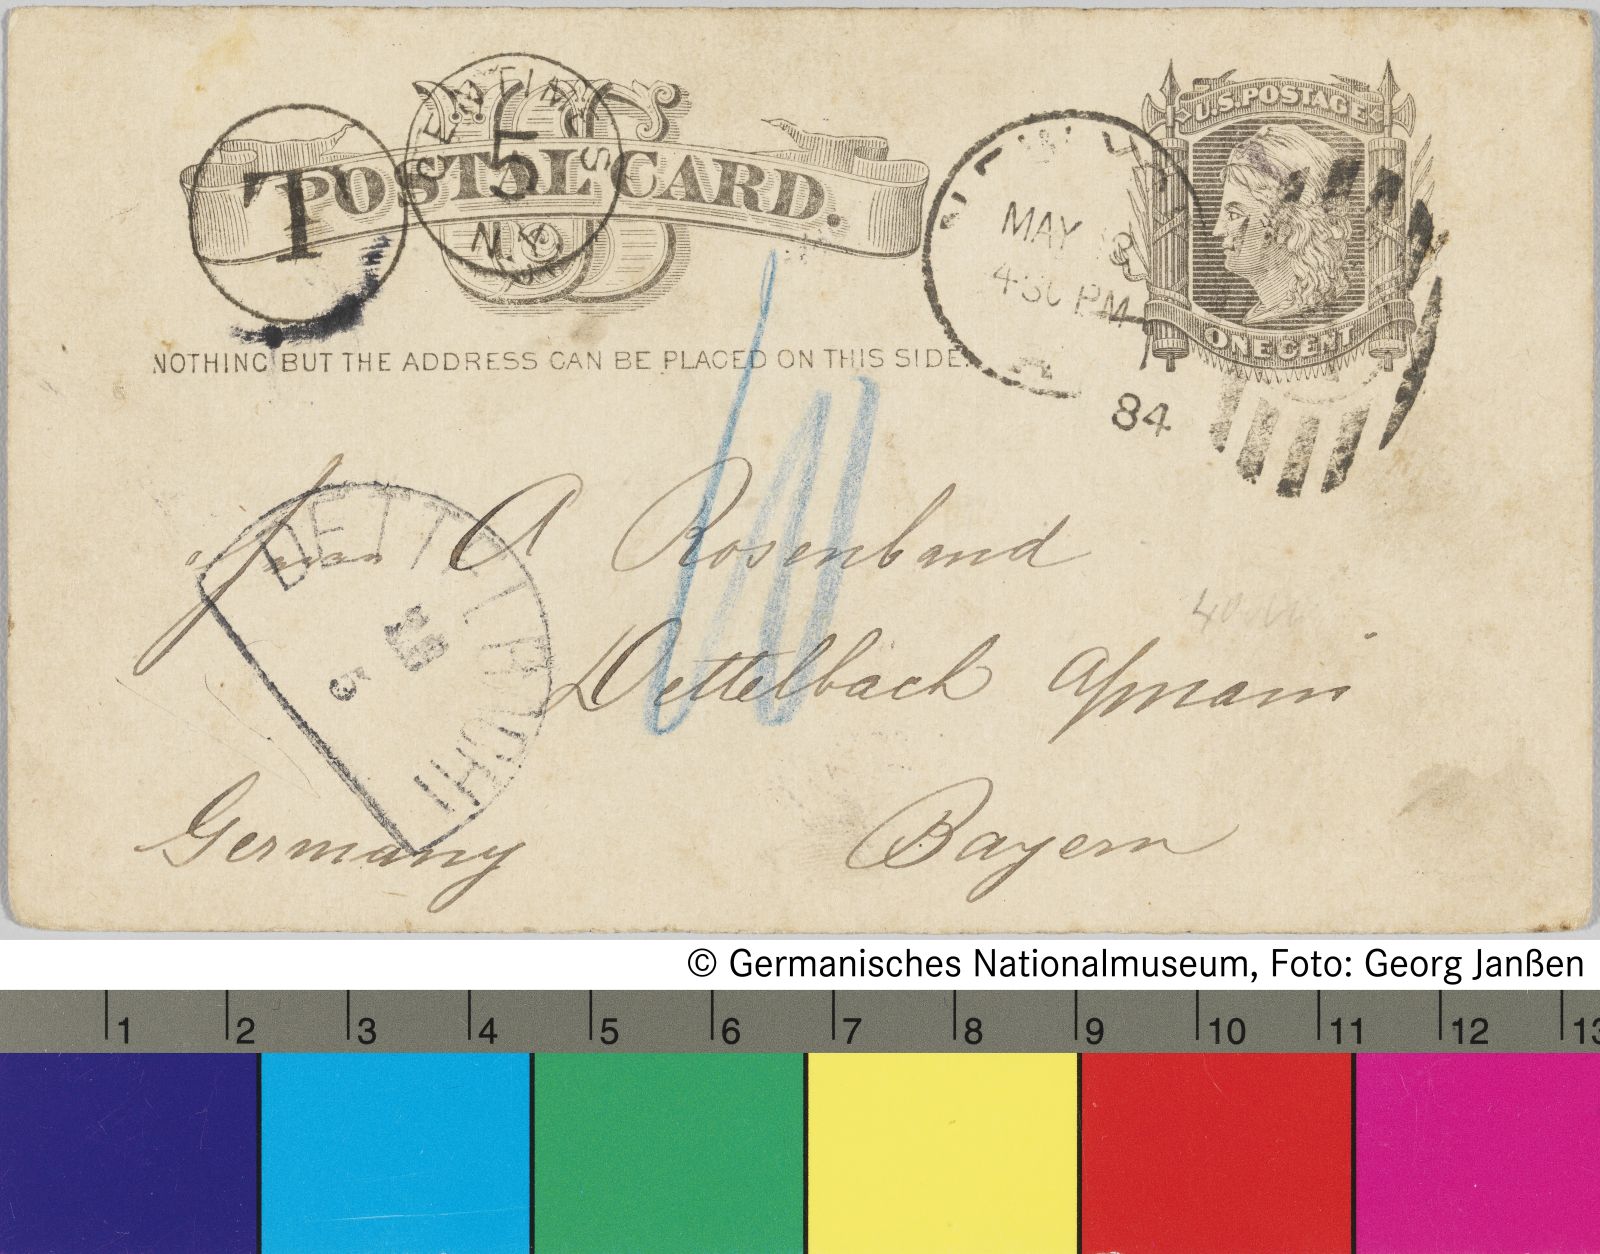 U.S. POSTAGE
ONE CENT
US
POSTAL CARD.
T
CENTIMES
5
N.Y.
MAY
4 30 PM
84
NOTHING BUT THE ADDRESS CAN BE PLACED ON THIS SIDE.
10
Herrn A Rosenband
Dettelbach a/main
Germany Bayern
DETTELBACH
5
© Germanisches Nationalmuseum, Foto: Georg Janßen
1 2 3 4 5 6 7 8 9 10 11 12 13